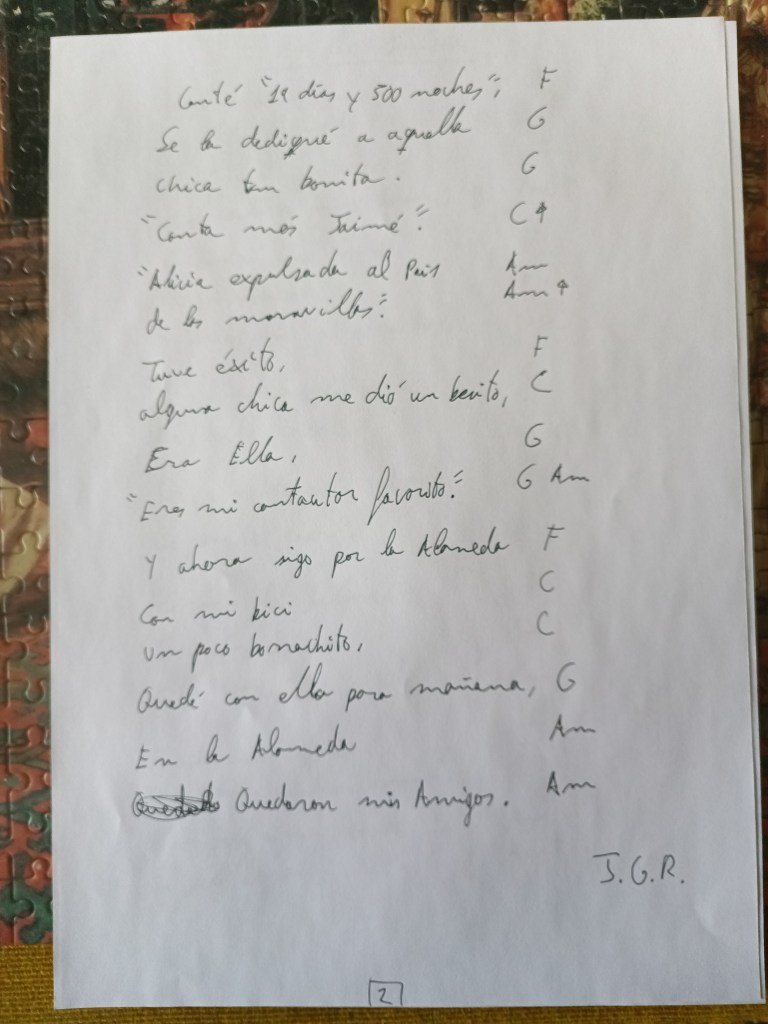 Canté "19 días y 500 noches", F
Se la dediqué a aquella G
chica tan bonita. G
"Canta más Jaime". C↑
"Alicia expulsada al País Am
de las maravillas". Am↑
Tuve éxito, F
alguna chica me dió un besito, C
Era Ella, G
"Eres mi cantautor favorito." G Am
Y ahora sigo por la Alameda F
Con mi bici C
un poco borrachito, C
Quedé con ella para mañana, G
En la Alameda Am
Quedaron mis Amigos. Am
J.G.R.
2